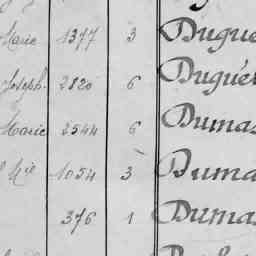 Marie 1377 3 Dugue
Joseph 2820 6 Dugué
Marie 2544 6 Dumas
1054 3 Duma
376 1 Dumas